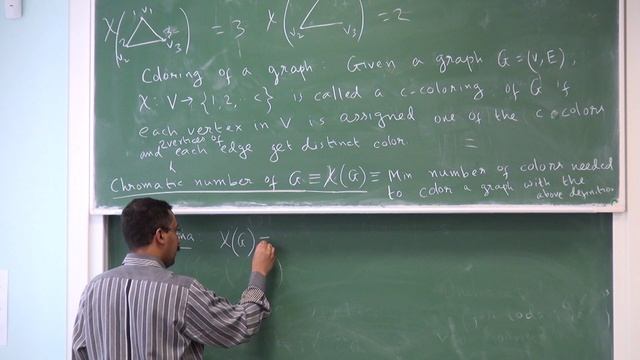 χ( v₁ v₂ v₃ ) = 3 χ( v₂ v₃ ) = 2
Coloring of a graph : Given a graph G = (V, E) ,
χ : V → {1, 2, .. c} is called a c-coloring of G if
each vertex in V is assigned one of the c colors
2 vertices of
and each edge get distinct color =
Chromatic number of G ≡ χ(G) ≡ Min number of colors needed
to color a graph with the
above definition
χ(G) =